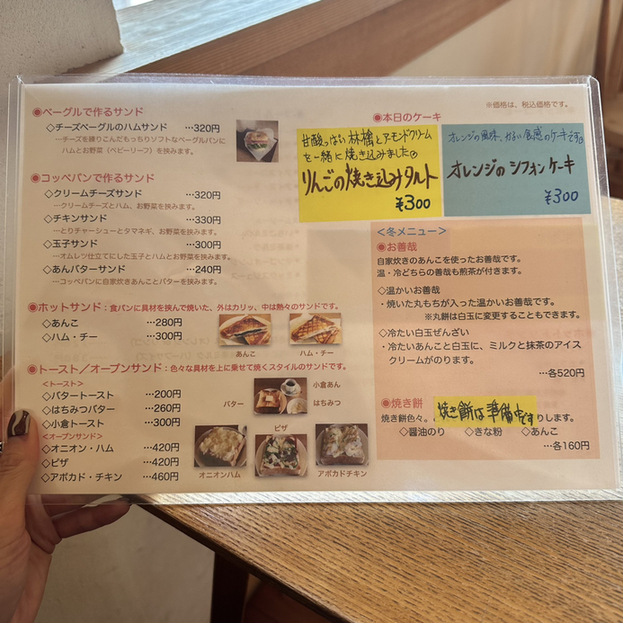 ◉ベーグルで作るサンド
◇チーズベーグルのハムサンド …320円
…チーズを練りこんだもっちりソフトなベーグルパンに
ハムとお野菜（ベビーリーフ）を挟みます。
◉コッペパンで作るサンド
◇クリームチーズサンド …320円
…クリームチーズとハム、お野菜を挟みます。
◇チキンサンド …330円
…とりチャーシューとタマネギ、お野菜を挟みます。
◇玉子サンド …300円
…オムレツ仕立てにした玉子とハムとお野菜を挟みます。
◇あんバターサンド …240円
…コッペパンに自家炊きあんことバターを挟みます。
◉ホットサンド：食パンに具材を挟んで焼いた、外はカリッ、中は熱々のサンドです。
◇あんこ …280円
◇ハム・チー …300円
あんこ
ハム・チー
◉トースト／オープンサンド：色々な具材を上に乗せて焼くスタイルのサンドです。
＜トースト＞
◇バタートースト …200円
◇はちみつバター …260円
◇小倉トースト …300円
＜オープンサンド＞
◇オニオン・ハム …420円
◇ピザ …420円
◇アボカド・チキン …460円
小倉あん
バター
はちみつ
ピザ
オニオンハム
アボカドチキン
※価格は、税込価格です。
◉本日のケーキ
甘酸っぱい林檎とアモンドクリーム
を一緒に焼き込みました
りんごの焼き込みタルト
¥300
オレンジの風味、かるい食感のケーキです
オレンジのシフォンケーキ
¥300
＜冬メニュー＞
◉お善哉
自家炊きのあんこを使ったお善哉です。
温・冷どちらの善哉も煎茶が付きます。
◇温かいお善哉
・焼いた丸もちが入った温かいお善哉です。
※丸餅は白玉に変更することもできます。
◇冷たい白玉ぜんざい
・冷たいあんこと白玉に、ミルクと抹茶のアイス
クリームがのります。
…各520円
◉焼き餅
焼き餅は準備中です
焼き餅色々。
りします。
◇醤油のり ◇きな粉 ◇あんこ
…各160円